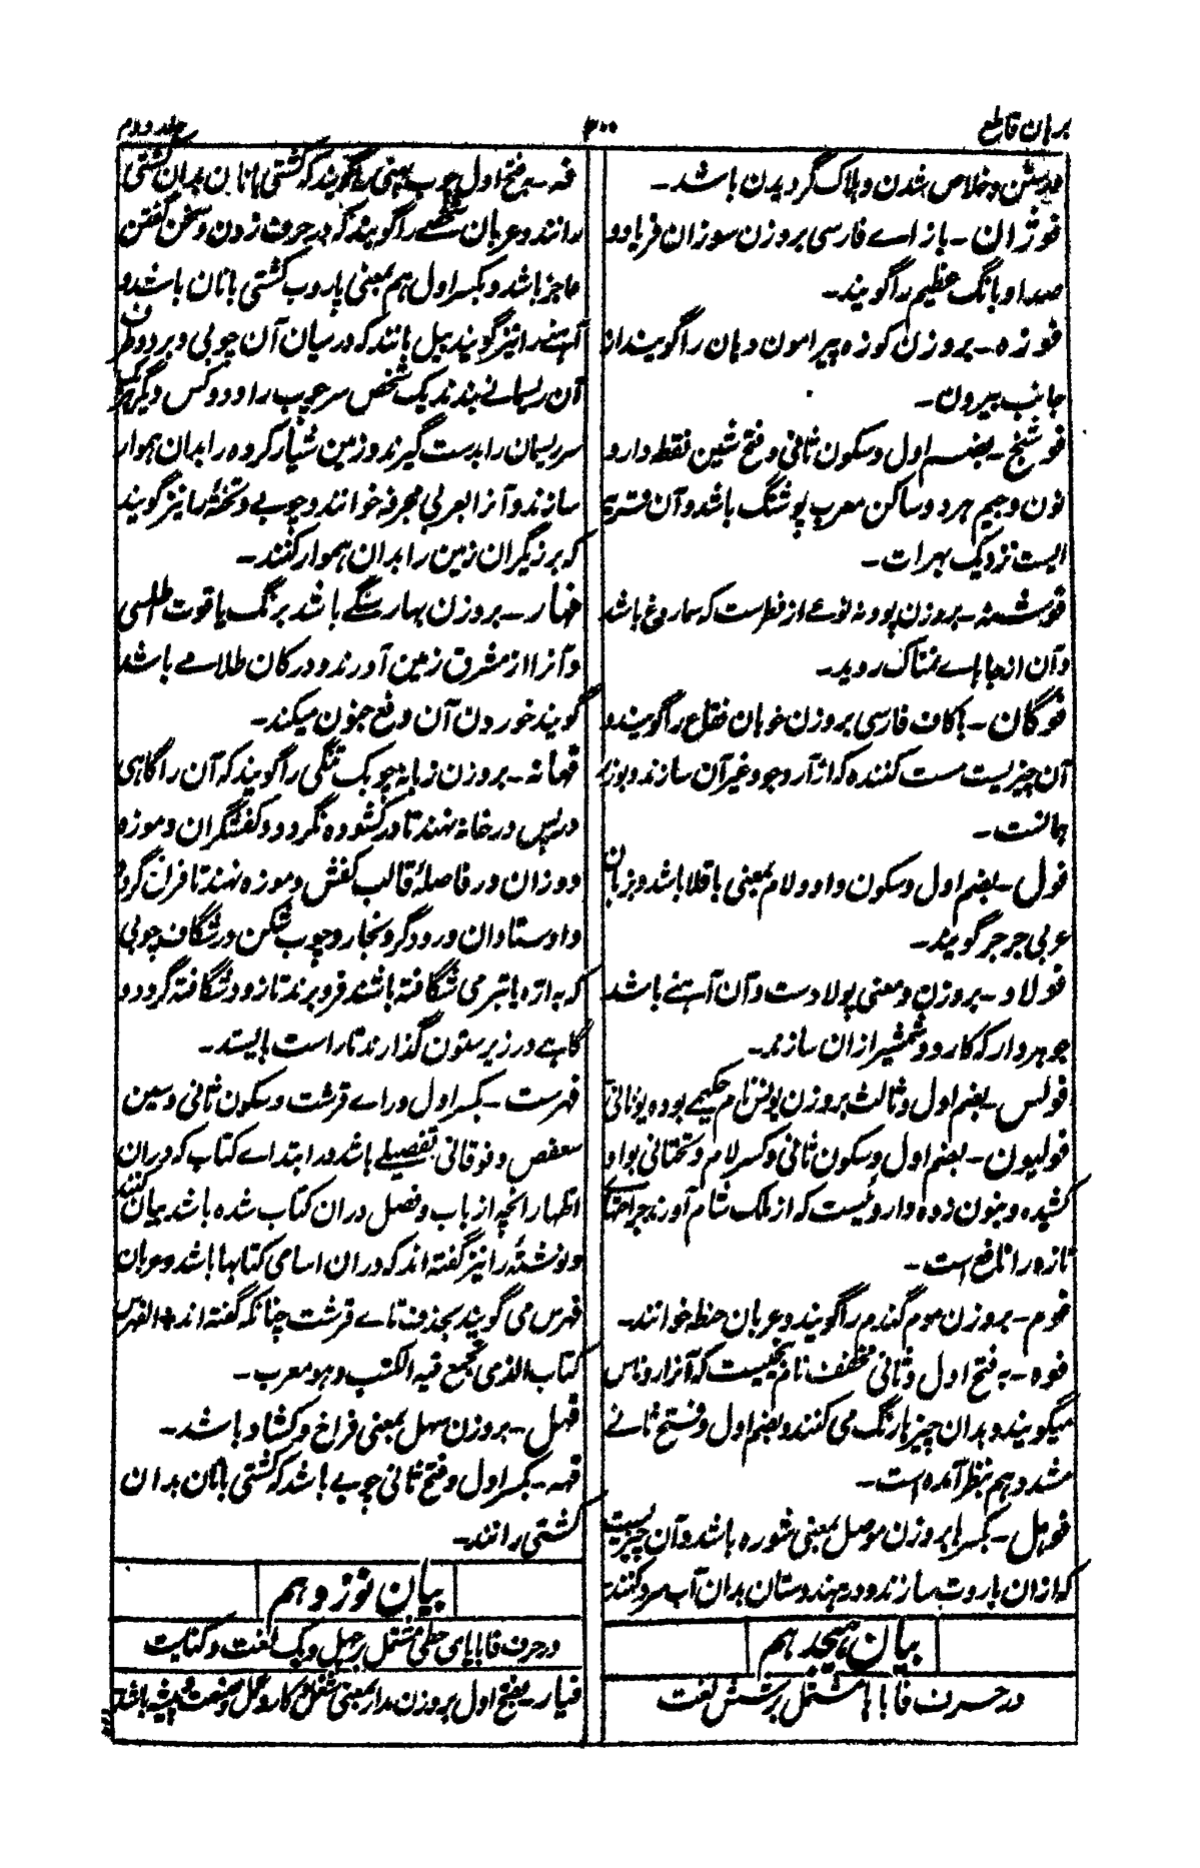 برہان قاطع
۳۰۰
جلد دوم
جستن و خلاص شدن و ہلاک گردیدن باشد۔
فوژان۔ با زاے فارسی بروزن سوزان فریاد و
صدا و بانگ عظیم را گویند۔
فوزہ۔ بروزن کوزہ پیرامون دہان را گویند از
جانب بیرون۔
فوشنج۔ بضم اول و سکون ثانی و فتح شین نقطہ دار و
نون و جیم ہر دو ساکن معرب پوشنگ باشد و آن قریہ
ایست نزدیک بہرات۔
فوشنہ۔ بروزن پودنہ نوعے از فطرست کہ سماروغ باشد
و آن از جاہاے نمناک روید۔
فوگان۔ باکاف فارسی بروزن خوبان فقاع را گویند و
آن چیزیست مست کننده کہ از آرد جو و غیر آن سازند و بوزہ
ہمانست۔
فول۔ بضم اول و سکون واو و لام بمعنی باقلا باشد و بزبان
عربی جرجر گویند۔
فولاد۔ بروزن و معنی پولادست و آن آہنے باشد
جوہردار کہ کارد و شمشیر ازان سازند۔
فولس۔ بضم اول و ثالث بروزن یونس نام حکیمے بودہ یونانی
فولیون۔ بضم اول و سکون ثانی و کسر لام و تحتانی بواو
کشیدہ و بنون زدہ داروئیست کہ از ملک شام آورند جراحتہاے
تازہ را نافع است۔
فوم۔ بروزن موم گندم را گویند و عربان حنطہ خوانند۔
فوہ۔ بہ فتح اول و ثانی مخفف نام بیخیست کہ آنرا روناس
میگویند و بدان چیزہا رنگ می کنند و بضم اول و فتح ثانے
مشدد ہم بنظر آمدہ است۔
فوہل۔ بکسر ہا بروزن موصل بمعنی شورہ باشد و آن چیزیست
کہ ازان باروت سازند و در ہندوستان بدان آب سرد کنند
بیان ہیجدہم
در حرف فا با ہا مشتمل بر شش لغت
فہ۔ بفتح اول چوب پہنی را گویند کہ کشتی بانان بدان کشتی
رانند و عربان شخصے را گویند کہ در حرف زدن و سخن گفتن
عاجز باشد و بکسر اول ہم بمعنی پاروب کشتی بانان باشد و
آہنے را نیز گویند بیل مانند کہ درمیان آن چوبی و بر دو طرف
آن ریسمانے بندند یک شخص سر چوب را و دو کس دیگر ہر
سر ریسمان را بدست گیرند و زمین شیار کردہ را بدان ہموار
سازند و آنرا بعربی مجرفہ خوانند و چوبے و تختہ را نیز گویند
کہ برزیگران زمین را بدان ہموار کنند۔
فہار۔ بروزن بہار سنگے باشد برنگ یاقوت اطلسی
و آنرا از مشرق زمین آورند و در کان طلا مے باشد
گویند خوردن آن دفع جنون میکند۔
فہانہ۔ بروزن زبانہ چوبک تنگی را گویند کہ آن را گاہی
در پس در خانہ نہند تا در کشودہ نگردد و کفشگران و موزہ
دوزان در فاصلۂ قالب کفش و موزہ نہند تا فراخ گردد
و اوستادان درودگر و نجار و چوب شکن در شگاف چوبی
کہ بہ ارہ یا تبر می شگافتہ باشند فرو برند تا زود شگافتہ گردد و
گاہے در زیر ستون گذارند تا راست بایستد۔
فہرست۔ بکسر اول و راے قرشت و سکون ثانی و سین
سعفص و فوقانی تفصیلے باشد در ابتداے کتاب کہ دران
اظہار انچہ از باب و فصل دران کتاب شدہ باشد بیان کنند
و نوشتۂ را نیز گفتہ اند کہ دران اسامی کتابہا باشد و عربان
فہرس می گویند بحذف تاے قرشت چنانکہ گفتہ اند الفہرس
کتاب الذی تجمع فیہ الکتب و ہو معرب۔
فہل۔ بروزن سہل بمعنی فراخ و کشاد باشد۔
فہہ۔ بکسر اول و فتح ثانی چوبے باشد کہ کشتی بانان بدان
کشتی رانند۔
بیان نوزدہم
در حرف فا با یای حطی مشتمل بر چہل و یک لغت و کنایت
فیار۔ بفتح اول بروزن مدار بمعنی شغل و کار و عمل و صنعت و پیشہ باشد